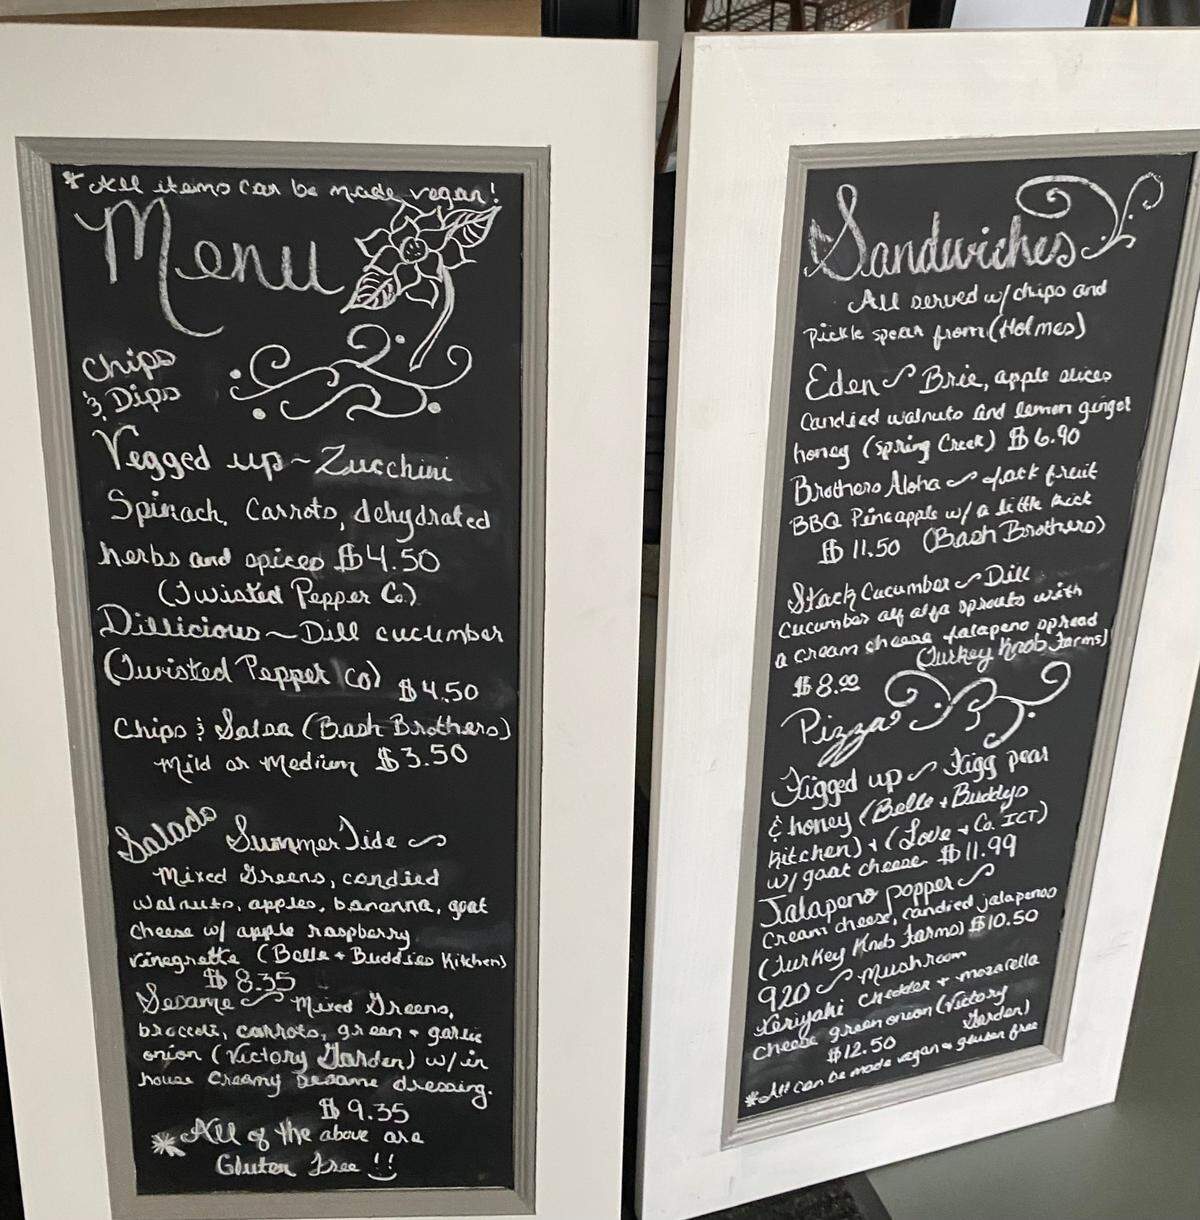 *All items can be made vegan!
Menu
Chips
& Dips
Vegged up ~ Zucchini
Spinach, Carrots, dehydrated
herbs and spices $4.50
(Twisted Pepper Co.)
Dillicious ~ Dill cucumber
(Twisted Pepper Co) $4.50
Chips & Salsa (Bash Brothers)
Mild or Medium $3.50
Salads Summer Tide ~
Mixed Greens, candied
walnuts, apples, bananna, goat
cheese w/ apple raspberry
vinegrette (Belle + Buddies Kitchen)
$8.35
Sesame ~ Mixed Greens,
broccoli, carrots, green + garlic
onion (Victory Garden) w/ in
house creamy sesame dressing.
$9.35
*All of the above are
Gluten Free !!
Sandwiches
All served w/ chips and
Pickle spear from (Holmes)
Eden ~ Brie, apple slices
Candied walnuts and lemon ginger
honey (Spring Creek) $6.90
Brothers Aloha ~ Jack fruit
BBQ Pineapple w/ a little kick
$11.50 (Bash Brothers)
Stack Cucumber ~ Dill
Cucumber alf alfa sprouts with
a cream cheese Jalapeno spread
(Turkey Knob Farms)
$8.00
Pizza
Figged up ~ Figg pear
& honey (Belle + Buddys
Kitchen) + (Love + Co. ICT)
w/ goat cheese $11.99
Jalapeno popper ~
Cream cheese, candied jalapenos
(Turkey Knob Farms) $10.50
920 ~ Mushroom
teriyaki chedder + mozarella
cheese green onion (Victory
Garden)
$12.50
*All can be made vegan + gluten free